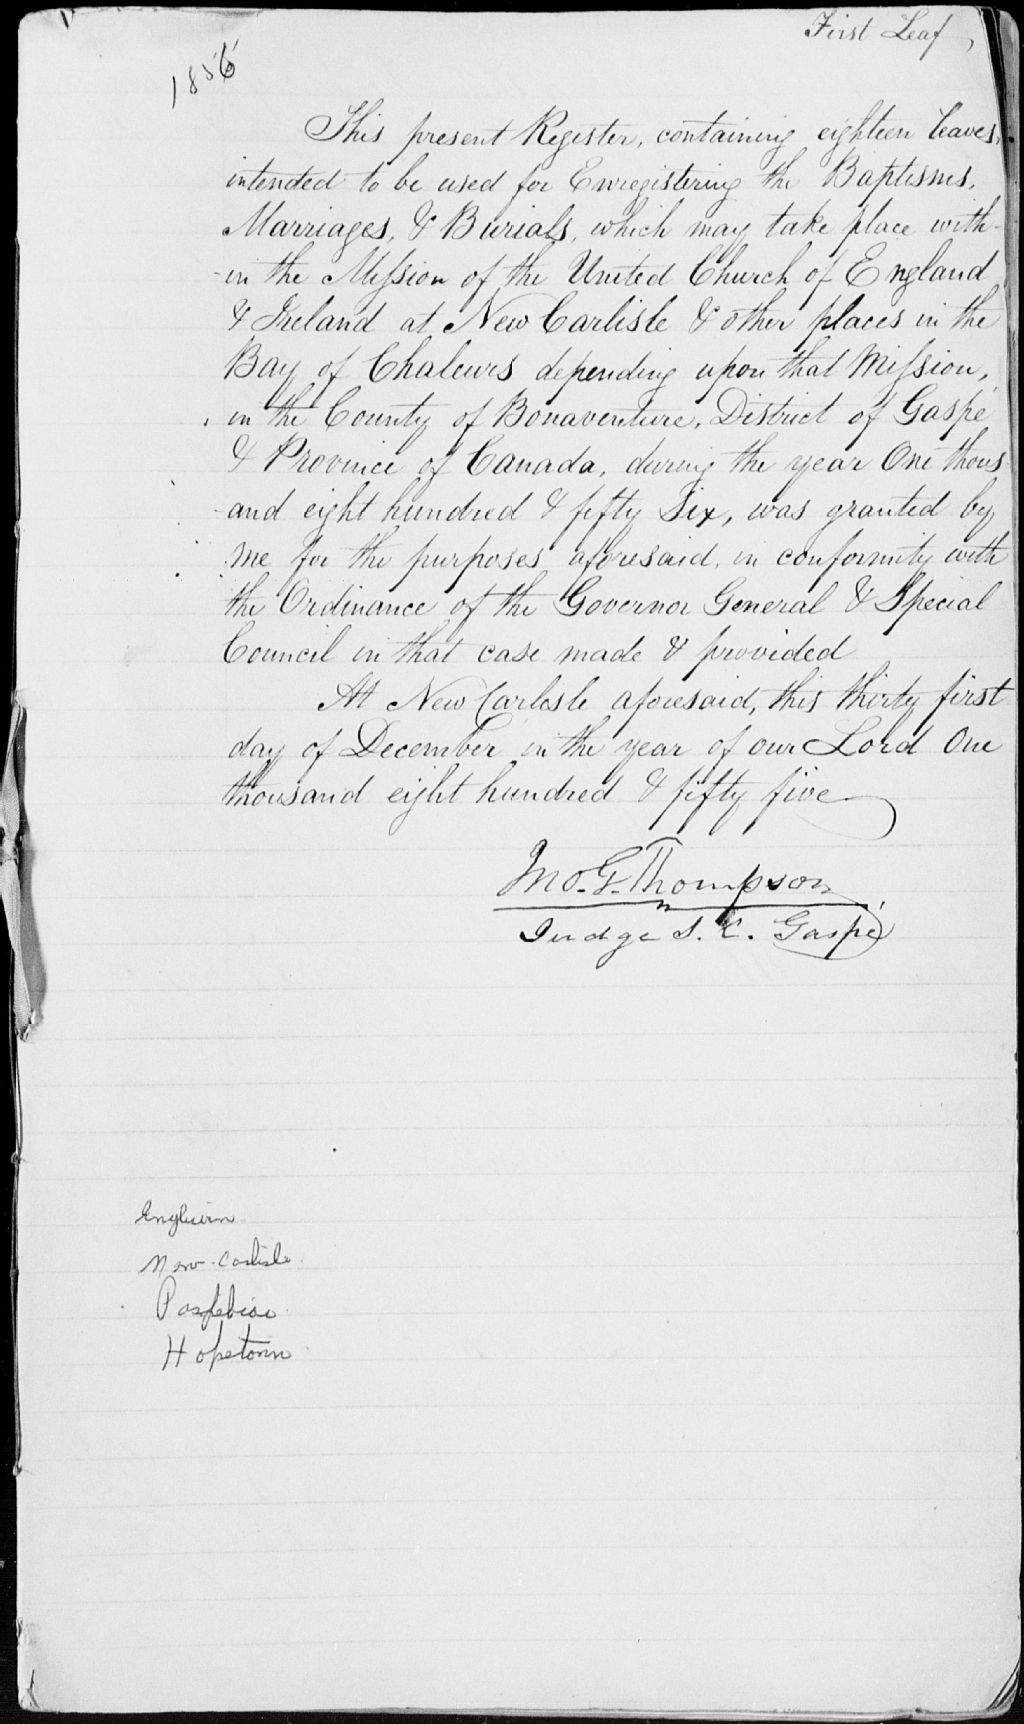 First Leaf
1856
This present Register, containing eighteen leaves,
intended to be used for Enregistering the Baptisms,
Marriages, & Burials, which may take place with-
-in the Mission of the United Church of England
& Ireland at New Carlisle & other places in the
Bay of Chaleurs depending upon that Mission,
in the County of Bonaventure, District of Gaspé
& Province of Canada, during the year One thous
-and eight hundred & fifty Six, was granted by
me for the purposes aforesaid, in conformity with
the Ordinance of the Governor General & Special
Council in that case made & provided
At New Carlisle aforesaid, this thirty first
day of December in the year of our Lord One
thousand eight hundred & fifty five
Jno. G. Thompson
Judge S. C. Gaspé
New-Carlisle
Paspebiac
Hopetown